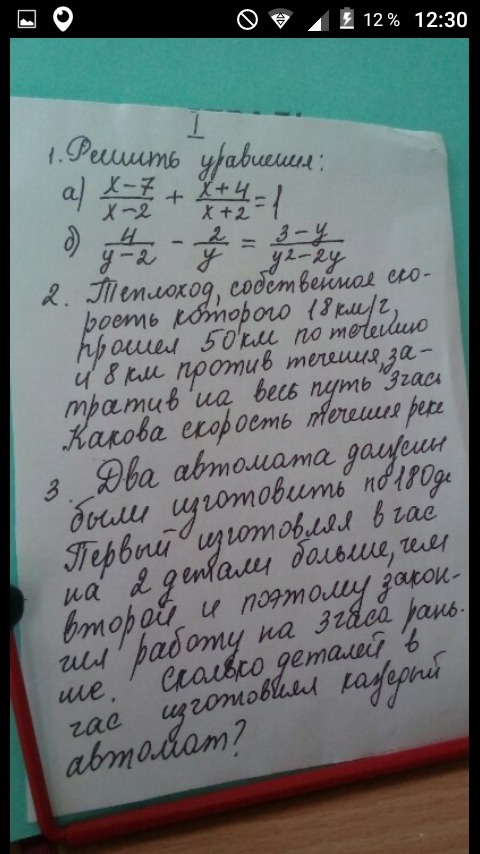 12 % 12:30
I
1. Решить уравнения:
а) \frac{x-7}{x-2} + \frac{x+4}{x+2} = 1
б) \frac{4}{y-2} - \frac{2}{y} = \frac{3-y}{y²-2y}
2. Теплоход, собственная ско-
рость которого 18 км/г,
прошел 50 км по течению
и 8 км против течения, за-
тратив на весь путь 3 часа
Какова скорость течения реке
3. Два автомата должны
были изготовить по 180 де
Первый изготовлял в час
на 2 детали больше, чем
второй и поэтому закон-
чил работу на 3 часа рань-
ше. Сколько деталей в
час изготовлял каждый
автомат?